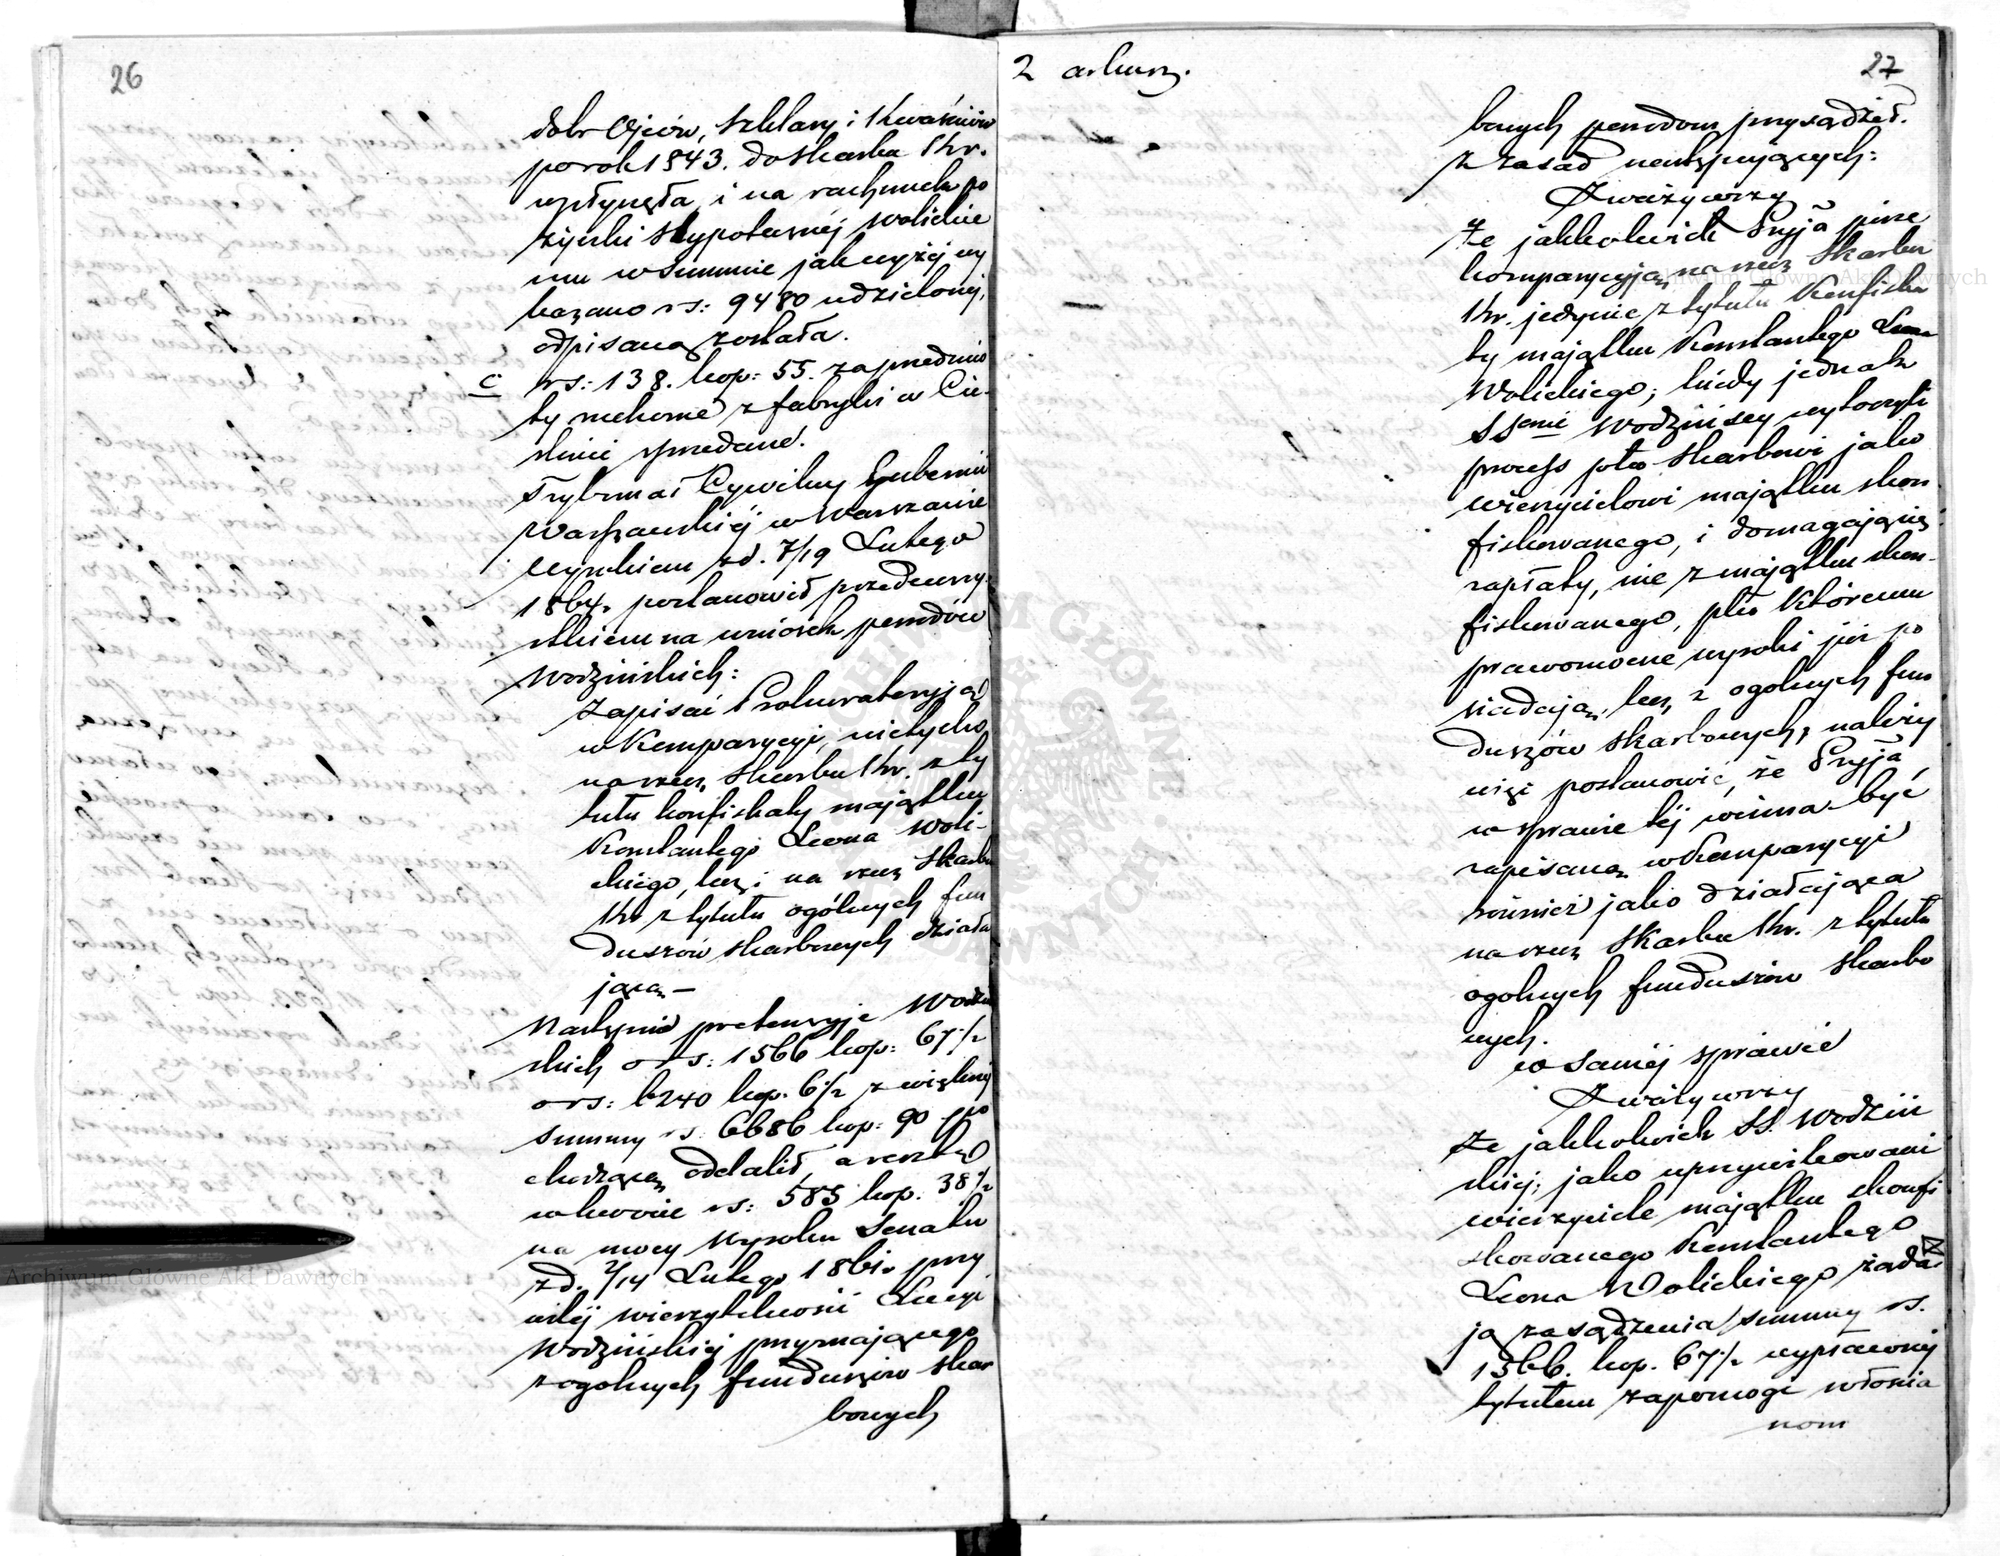 26
dobr Ojców, Szklary i Kwaśniów
po rok 1843. do Skarbu Kr.
wpłynęła, i na rachunek po
życzki Hypotecznéj Wolickie
mu w summie jak wyżéj wy
kazano rs: 9480 udzielonéj,
odpisaną została.
c rs: 138. kop: 55. za przedmio
ty ruchome z fabryki w Cie-
slinie sprzedane.
Trybunał Cywilny Gubernii
Warszawskiéj w Warszawie
Wyrokiem z d. 7/19 Lutego
1864 r. postanowił przedewszy
stkiem na wniosek powodów
Wodzińskich:
Zapisać Prokuratoryją
w Komparycyi, nietylko
na rzecz Skarbu Kr. z ty
tułu konfiskaty majątku
Konstantego Leona Woli-
ckiego, lecz i na rzecz Skarbu
Kr. z tytułu ogólnych fun
duszów skarbowych działa
jącą —
Następnie pretensyje Wodziń
skich o rs: 1566 kop: 67½
o rs: 6240 kop. 6½ z większéj
summy rs. 6686 kop: 90 po
chodzącą oddalił, a resztę
w kwocie rs: 583 kop. 38½
na mocy Wyroku Senatu
z d. 2/14 Lutego 1861 r. przy
wilej wierzytelności Łucyi
Wodzińskiéj przyznającego
z ogolnych funduszów skar
bowych
2 arkusz.
27
bowych powodom przysądził.
z zasad następujących:
Zważywszy
że jakkolwiek Pryja pisze
komparycyją na rzecz Skarbu
Kr. jedynie z tytułu Konfiska
ty majątku Konstantego Leona
Wolickiego; kiedy jednak
SSowie Wodzińscy wytoczyli
process pko Skarbowi jako
wierzycielowi majątku skon
fiskowanego, i domagają się
zapłaty, nie z majątku skon-
fiskowanego, pko któremu
prawomocne wyroki już po
siadają, lecz z ogolnych fun
duszów skarbowych, należy
więc postanowić, że Pryja
w sprawie téj winna być
zapisaną w Komparycyi
również jako działająca
na rzecz Skarbu Kr. z tytułu
ogolnych funduszów skarbo
wych.
w saméj sprawie
Zważywszy
że jakkolwiek SS. Wodziń
skiéj, jako uprzywilejowani
wierzyciele majątku skonfi
skowanego Konstantego
Leona Wolickiego żąda
ją zasądzenia summy rs.
1566. kop. 67½ wypłaconéj
tytułem zapomogi włościa
nom
Archiwum Główne Akt Dawnych
Archiwum Główne Akt Dawnych